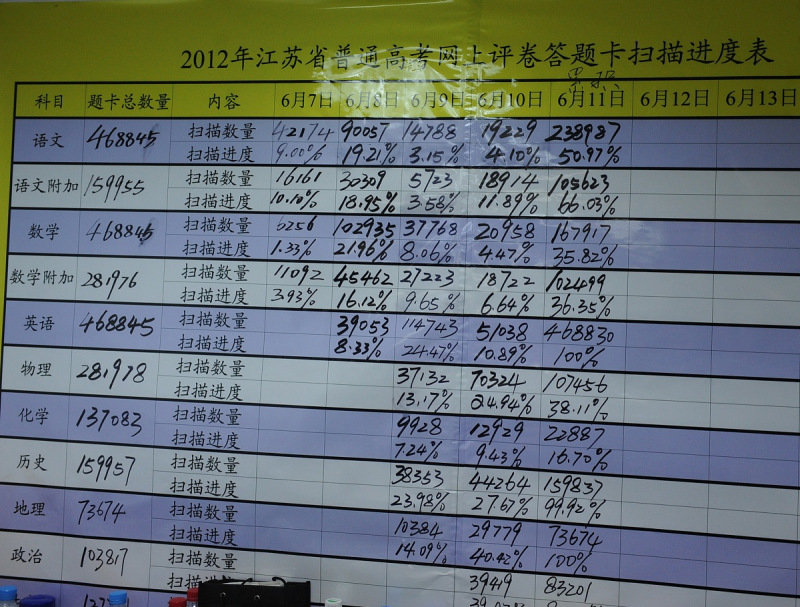 2012年江苏省普通高考网上评卷答题卡扫描进度表
累积
科目 题卡总数量 内容 6月7日 6月8日 6月9日 6月10日 6月11日 6月12日 6月13日
语文 468845 扫描数量 42174 90057 14788 19229 238987
扫描进度 9.00% 19.21% 3.15% 4.10% 50.97%
语文附加 159955 扫描数量 16161 30309 5723 18914 105623
扫描进度 10.10% 18.95% 3.58% 11.89% 66.03%
数学 468845 扫描数量 6256 102935 37768 20958 167917
扫描进度 1.33% 21.96% 8.06% 4.47% 35.82%
数学附加 281976 扫描数量 11092 45462 27223 18722 102499
扫描进度 3.93% 16.12% 9.65% 6.64% 36.35%
英语 468845 扫描数量 39053 114743 51038 468830
扫描进度 8.33% 24.47% 10.89% 100%
物理 281978 扫描数量 37132 70324 107456
扫描进度 13.17% 24.94% 38.11%
化学 137083 扫描数量 9928 12929 22887
扫描进度 7.24% 9.43% 16.70%
历史 159957 扫描数量 38353 44264 159837
扫描进度 23.98% 27.67% 99.92%
地理 73674 扫描数量 10384 29779 73674
扫描进度 14.09% 40.42% 100%
政治 103817 扫描数量 39419 83201
扫描